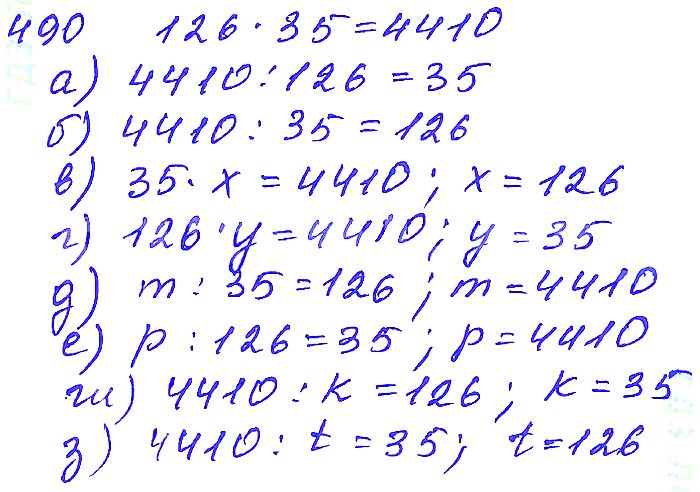 490 126 · 35 = 4410
а) 4410 : 126 = 35
б) 4410 : 35 = 126
в) 35 · x = 4410 ; x = 126
г) 126 · y = 4410 ; y = 35
д) m : 35 = 126 ; m = 4410
е) p : 126 = 35 ; p = 4410
ж) 4410 : k = 126 ; k = 35
з) 4410 : t = 35 ; t = 126